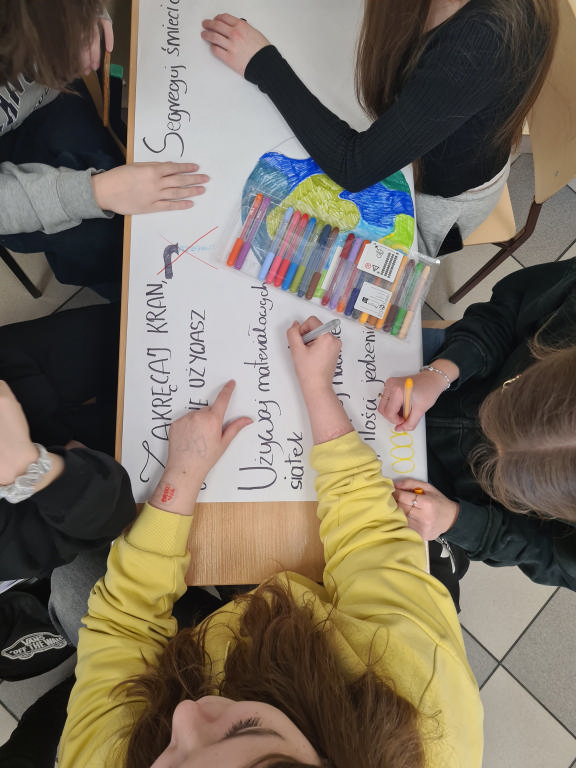 Segreguj śmieci
ZAKRĘCAJ KRAN,
UŻYWASZ
Używaj materiałowych
siatek
ilości jedzenia
VANS
"OFF THE WALL"